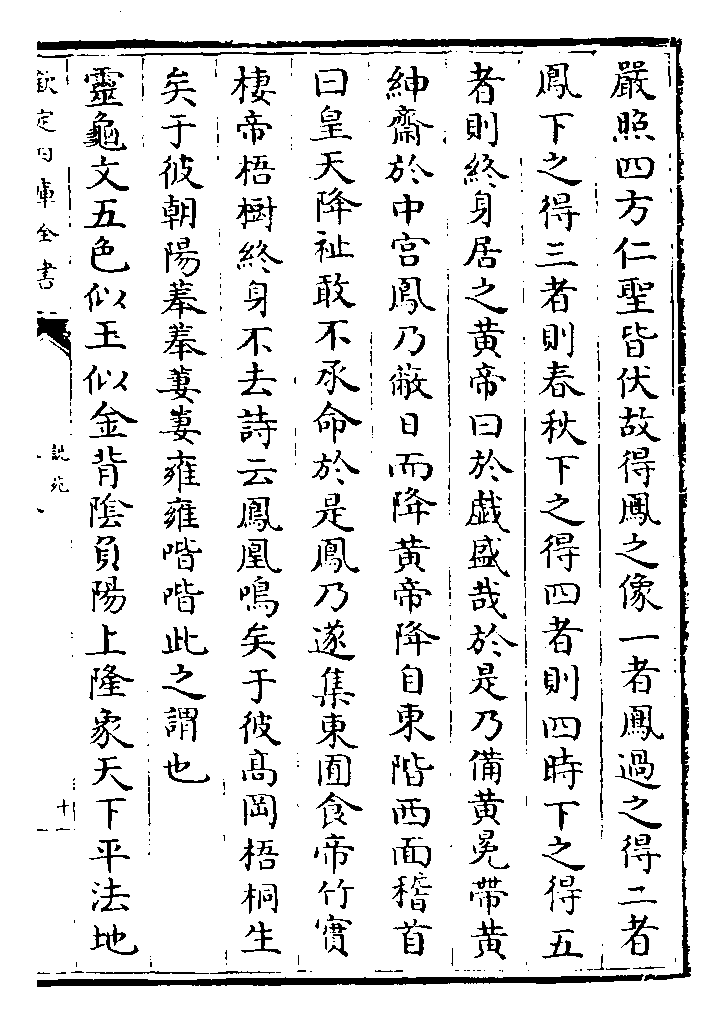 嚴照四方仁聖皆伏故得鳳之像一者鳳過之得二者
鳳下之得三者則春秋下之得四者則四時下之得五
者則終身居之黃帝曰於戯盛哉於是乃備黃冕帶黃
紳齋於中宫鳳乃蔽日而降黃帝降自東階西面稽首
曰皇天降祉敢不承命於是鳳乃遂集東囿食帝竹實
棲帝梧樹終身不去詩云鳳凰鳴矣于彼髙岡梧桐生
矣于彼朝陽菶菶萋萋雍雍喈喈此之謂也
靈龜文五色似玉似金背陰負陽上隆象天下平法地
欽定四庫全書
説苑
十